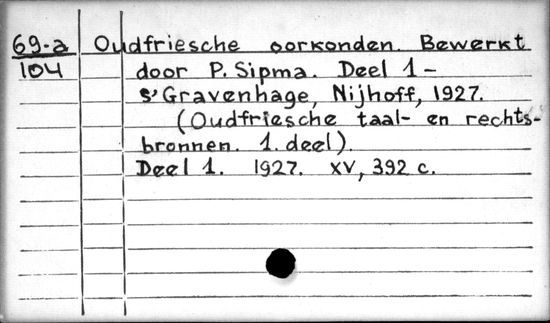 69-a Oudfriesche oorkonden. Bewerkt
104 door P. Sipma. Deel 1-
s'Gravenhage, Nijhoff, 1927.
(Oudfriesche taal- en rechts-
bronnen. 1. deel).
Deel 1. 1927. XV, 392 c.